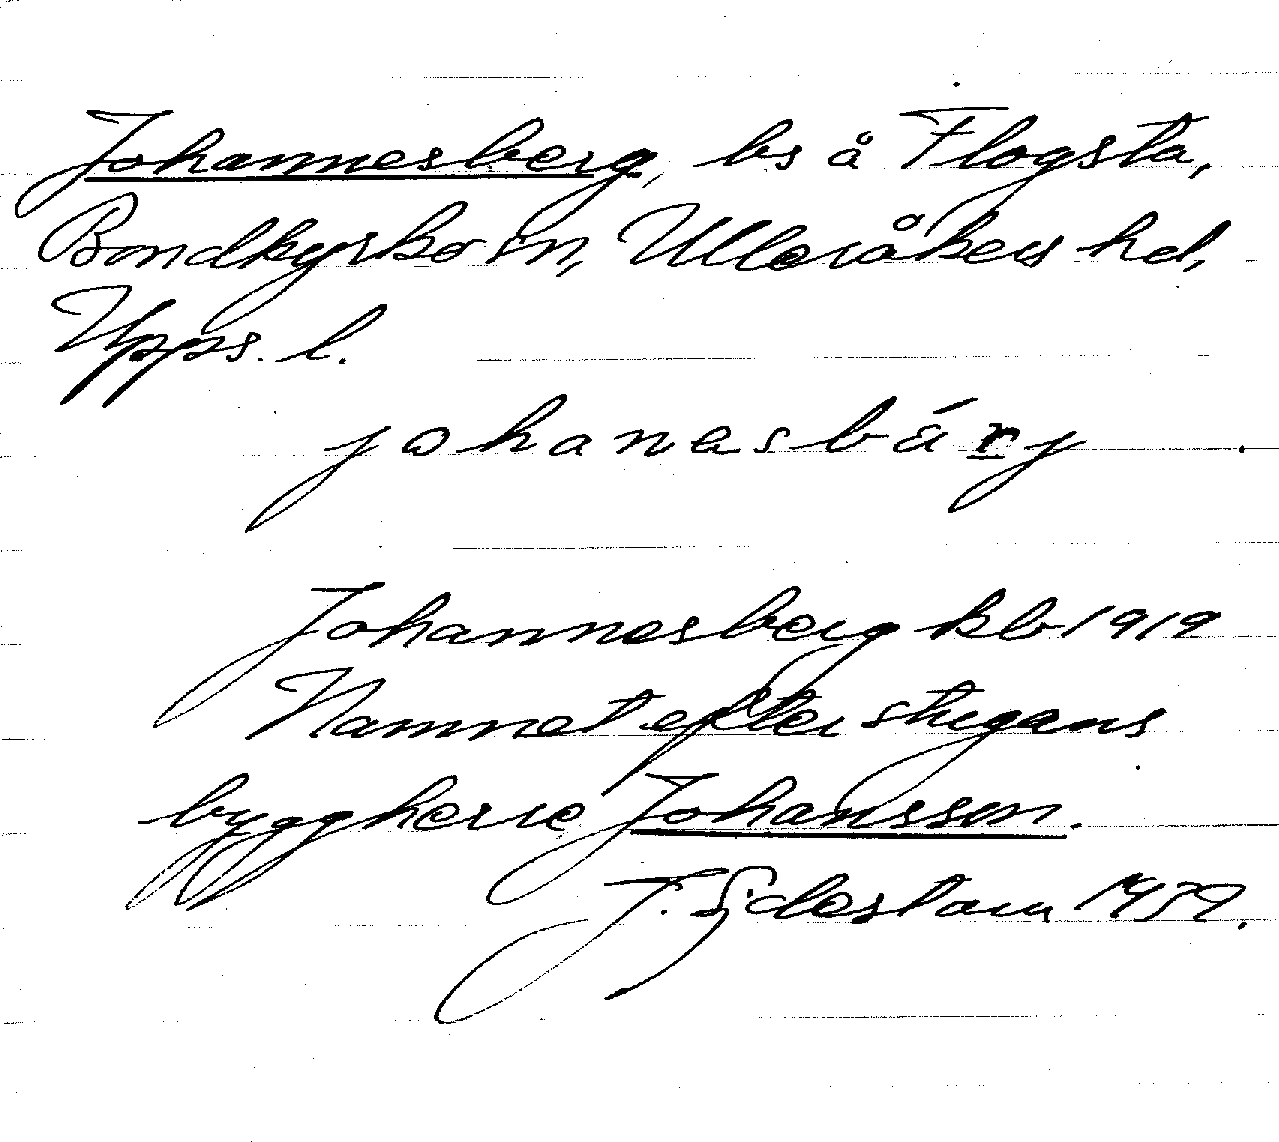 Johannesberg, bs å Flogsta,
Bondkyrko sn, Ulleråkers hd,
Upps. l.
johanasbárj
Johannesberg kb 1919
Namnet efter stugans
byggherre Johansson.
1939.